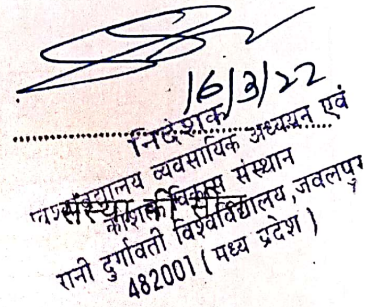 16/3/22
निदेशक
विश्वविद्यालय व्यवसायिक अध्ययन एवं
कौशल विकास संस्थान
संस्था की सील
रानी दुर्गावती विश्वविद्यालय, जबलपुर
482001 ( मध्य प्रदेश )